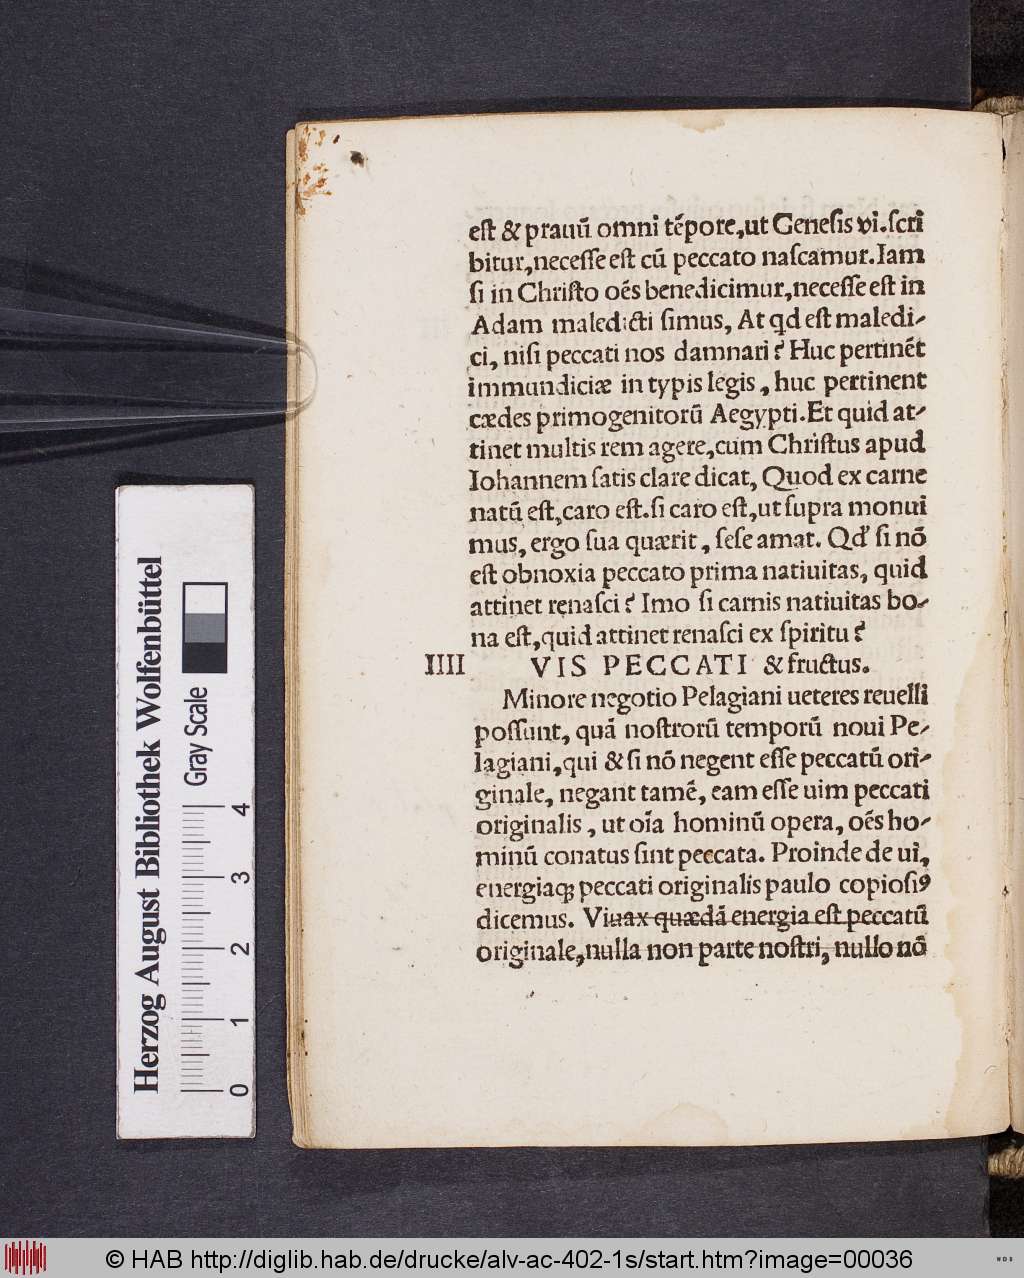 est & prauū omni tēpore, ut Genesis vi. scri
bitur, necesse est cū peccato nascamur. Iam
si in Christo oēs benedicimur, necesse est in
Adam maledicti simus, At qd est maledi-
ci, nisi peccati nos damnari? Huc pertinēt
immundiciæ in typis legis, huc pertinent
cædes primogenitorū Aegypti. Et quid at-
tinet multis rem agere, cum Christus apud
Iohannem satis clare dicat, Quod ex carne
natū est, caro est. si caro est, ut supra monui
mus, ergo sua quærit, sese amat. Qd' si nō
est obnoxia peccato prima natiuitas, quid
attinet renasci? Imo si carnis natiuitas bo-
na est, quid attinet renasci ex spiritu?
IIII VIS PECCATI & fructus.
Minore negotio Pelagiani ueteres reuelli
possunt, quā nostrorū temporū noui Pe-
lagiani, qui & si nō negent esse peccatū ori-
ginale, negant tamē, eam esse uim peccati
originalis, ut oīa hominū opera, oēs ho-
minū conatus sint peccata. Proinde de ui,
energiaqꝫ peccati originalis paulo copiosiꝰ
dicemus. Viuax quædā energia est peccatū
originale, nulla non parte nostri, nullo nō
Herzog August Bibliothek Wolfenbüttel
Gray Scale
0 1 2 3 4
© HAB http://diglib.hab.de/drucke/alv-ac-402-1s/start.htm?image=00036